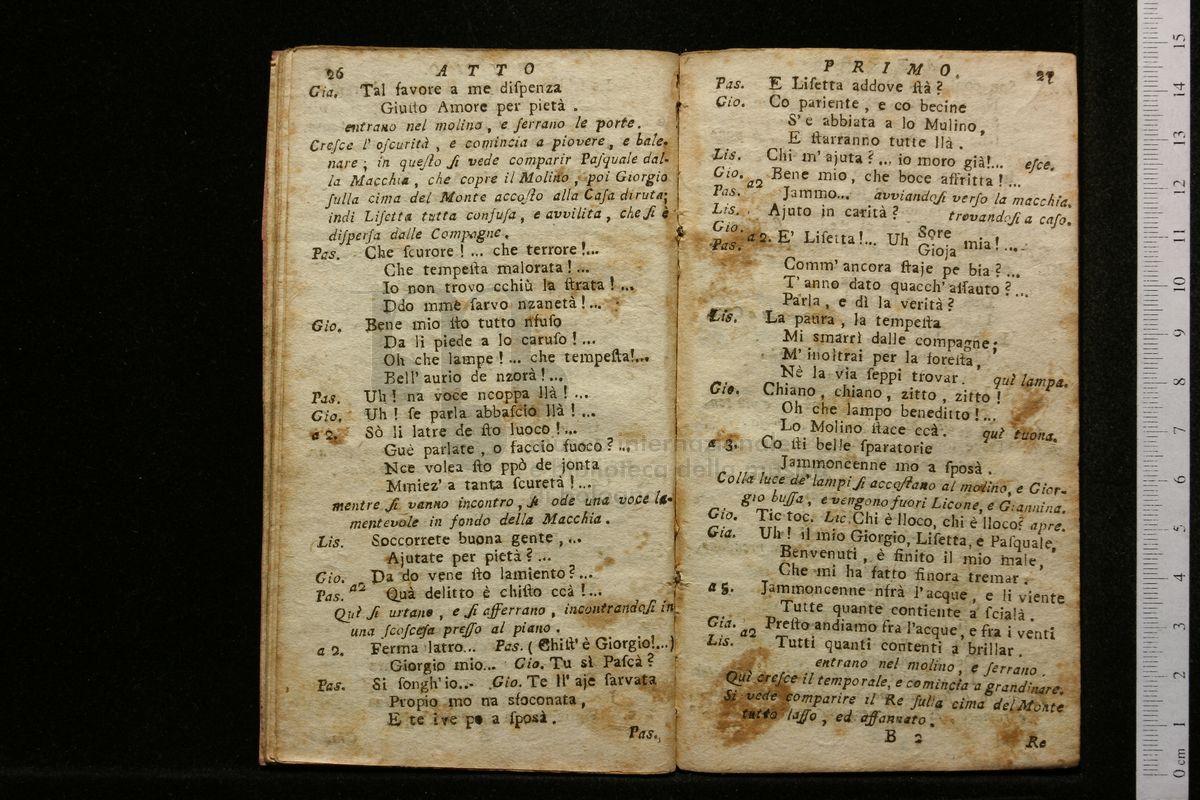 26 ATTO
Gia. Tal favore a me diſpenza
Giuſto Amore per pietà.
entrano nel molino, e ſerrano le porte.
Creſce l'oſcurità, e comincia a piovere, e bale-
nare; in queſto ſi vede comparir Paſquale dal-
la Macchia, che copre il Molino, poi Giorgio
ſulla cima del Monte accoſto alla Caſa diruta;
indi Liſetta tutta confuſa, e avvilita, che ſi è
diſperſa dalle Compagne.
Pas. Che ſcurore! ... che terrore!...
Che tempeſta malorata! ...
Io non trovo cchiù la ſtrata! ...
Ddo mme ſarvo nzanetà!...
Gio. Bene mio ſto tutto nfuſo
Da li piede a lo caruſo! ...
Oh che lampe! ... che tempeſta!...
Bell'aurio de nzorà! ...
Pas. Uh! na voce ncoppa llà! ...
Gio. Uh! ſe parla abbaſcio llà! ...
a 2. Sò li latre de ſto luoco! ...
Guè parlate, o faccio fuoco? ...
Nce volea ſto ppò de jonta
Mmiez'a tanta ſcuretà! ...
mentre ſi vanno incontro, ſi ode una voce la-
mentevole in fondo della Macchia.
Lis. Soccorrete buona gente, ...
Ajutate per pietà? ...
Gio. Da do vene ſto lamiento? ...
Pas. a2 Quà delitto è chiſto ccà! ...
Quì ſi urtano, e ſi afferrano, incontrandoſi in
una ſcoſceſa preſſo al piano.
a 2. Ferma latro... Pas. (Chiſt'è Giorgio!...)
Giorgio mio... Gio. Tu sì Paſcà?
Pas. Si ſongh'io... Gio. Te ll'aje ſarvata
Propio mo na sfoconata,
E te ive po a ſposà.
Pas.
PRIMO. 27
Pas. E Liſetta addove ſtà?
Gio. Co pariente, e co becine
S'e abbiata a lo Mulino,
E ſtarranno tutte llà.
Lis. Chi m'ajuta? ... io moro già!... eſce.
Gio. Bene mio, che boce affritta! ...
Pas. a2 Jammo... avviandoſi verſo la macchia.
Lis. Ajuto in carità? trovandoſi a caſo.
Gio. Pas. a 2. E' Liſetta!... Uh Sore Gioja mia! ...
Comm'ancora ſtaje pe bia? ...
T'anno dato quacch'aſſauto? ...
Parla, e dì la verità?
Lis. La paura, la tempeſta
Mi smarrì dalle compagne;
M'inoltrai per la foreſta,
Nè la via ſeppi trovar. quì lampa.
Gio. Chiano, chiano, zitto, zitto!
Oh che lampo beneditto! ...
Lo Molino ſtace ccà. quì tuona.
a 3. Co ſti belle ſparatorie
Jammoncenne mo a ſposà.
Colla luce de' lampi ſi accoſtano al molino, e Gior-
gio buſſa, e vengono fuori Licone, e Giannina.
Gio. Tic toc. Lic. Chi è lloco, chi è lloco? apre.
Gia. Uh! il mio Giorgio, Liſetta, e Paſquale,
Benvenuti, è finito il mio male,
Che mi ha fatto finora tremar.
a 5. Jammoncenne nfrà l'acque, e li viente
Tutte quante contiente a ſcialà.
Gia. Preſto andiamo fra l'acque, e fra i venti
Lis. a2 Tutti quanti contenti a brillar.
entrano nel molino, e ſerrano.
Quì creſce il temporale, e comincia a grandinare.
Si vede comparire il Re ſulla cima del Monte
tutto laſſo, ed affannato.
B 2 Re